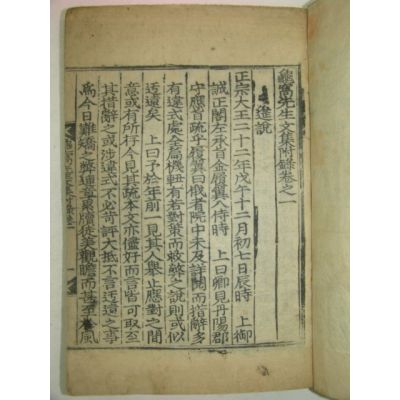 龜窩先生文集附錄卷之一
筵說
正宗大王二十二年戊午十二月初七日辰時 上御
誠正閣左承旨金履翼入侍時 上曰卿見丹陽郡
守應旨疏乎履翼曰俄者院中未及詳閱而措辭多
有違式處全篇機軸有若對策而救弊之說則或似
迂遠矣 上曰予於年前一見其人擧止應對之間
意或有所存今見其疏本文亦儘好而言皆可取至
其措辭之或涉違式不必苛評大抵不言迂遠之事
爲今日難矯之弊連章累牘徒美觀瞻而甚至 風